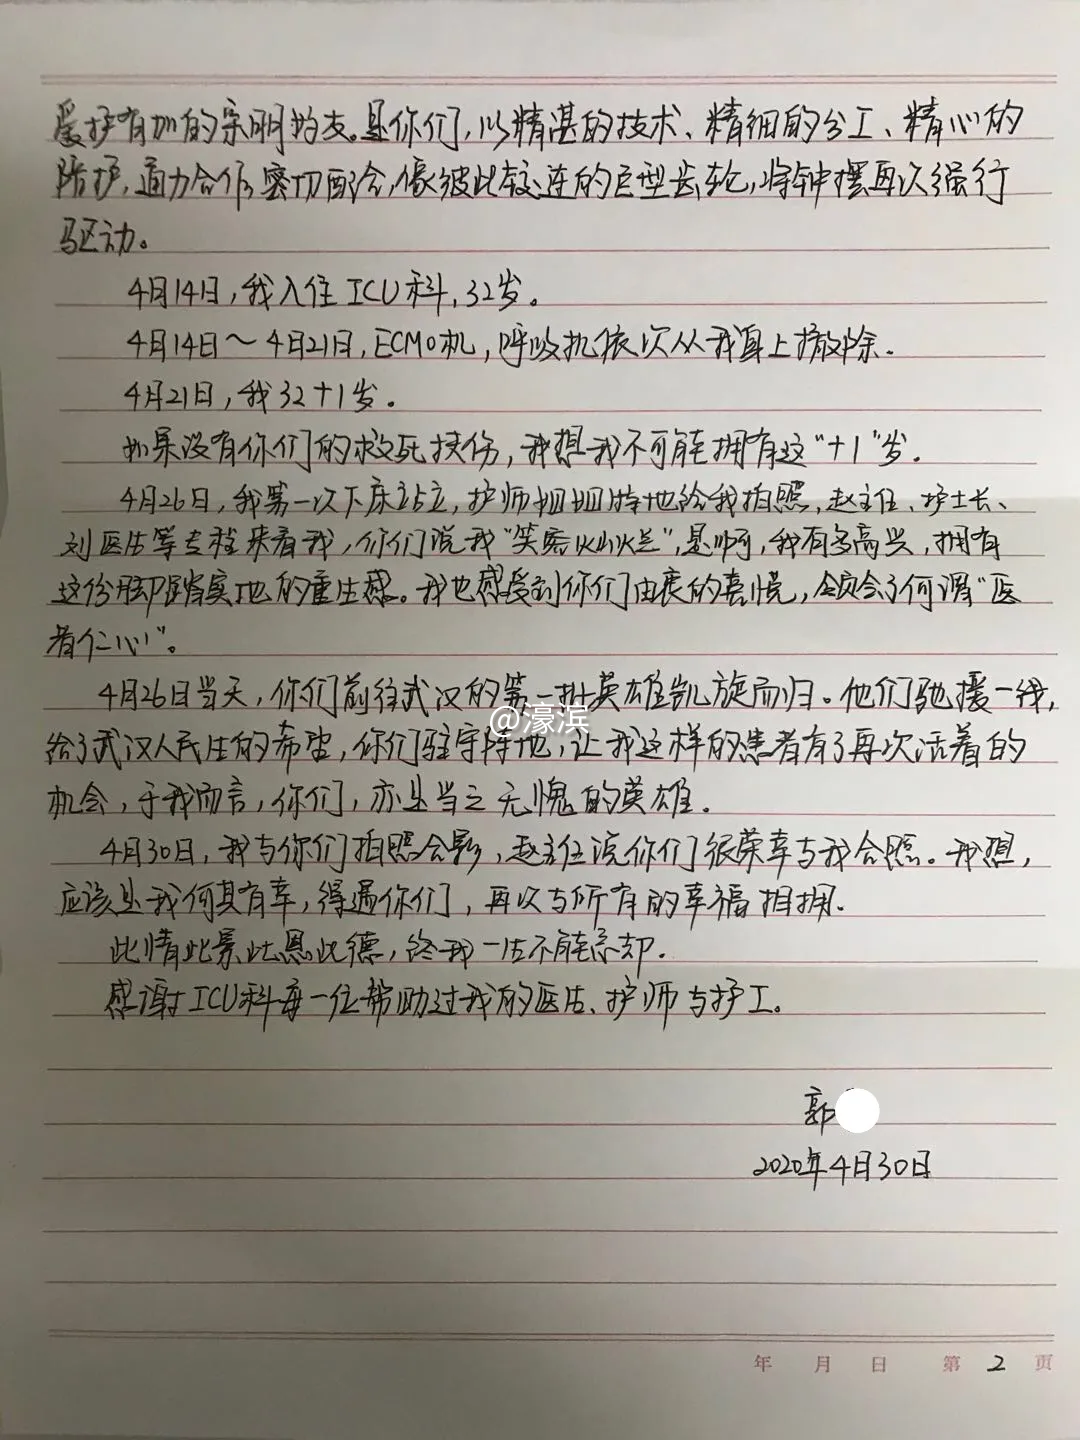 爱护有加的宗明均友。是你们,以精湛的技术、精细的分工、精心的
防护,通力合作,密切配合,像彼此较连的巨型齿轮,将钟摆再次强行
驱动。
4月14日,我入住ICU科,32岁。
4月14日~4月21日,ECMO机,呼吸机依次从我身上撤除.
4月21日,我32+1岁.
如果没有你们的救死扶伤,我想我不可能拥有这“+1”岁.
4月26日,我第一次下床站立,护师姐姐特地给我拍照,赵主任、护士长、
刘医生等专程来看我,你们说我“笑容灿烂”,是啊,我有多高兴,拥有
这份脚踏实地的重生感。我也感受到你们由衷的喜悦,领会了何谓“医
者仁心”。
4月26日当天,你们前往武汉的第一批英雄凯旋而归。他们驰援一线,
给了武汉人民生的希望,你们驻守阵地,让我这样的患者有了再次活着的
机会,于我而言,你们,亦是当之无愧的英雄.
4月30日,我与你们拍照合影,赵主任说你们很荣幸与我合照。我想,
应该是我何其有幸,得遇你们,再以与所有的幸福相拥.
此情此景此恩此德,终我一生不能忘却.
感谢ICU科每一位帮助过我的医生、护师与护工。
郭
2020年4月30日
年 月 日 第 2 页
@濠滨